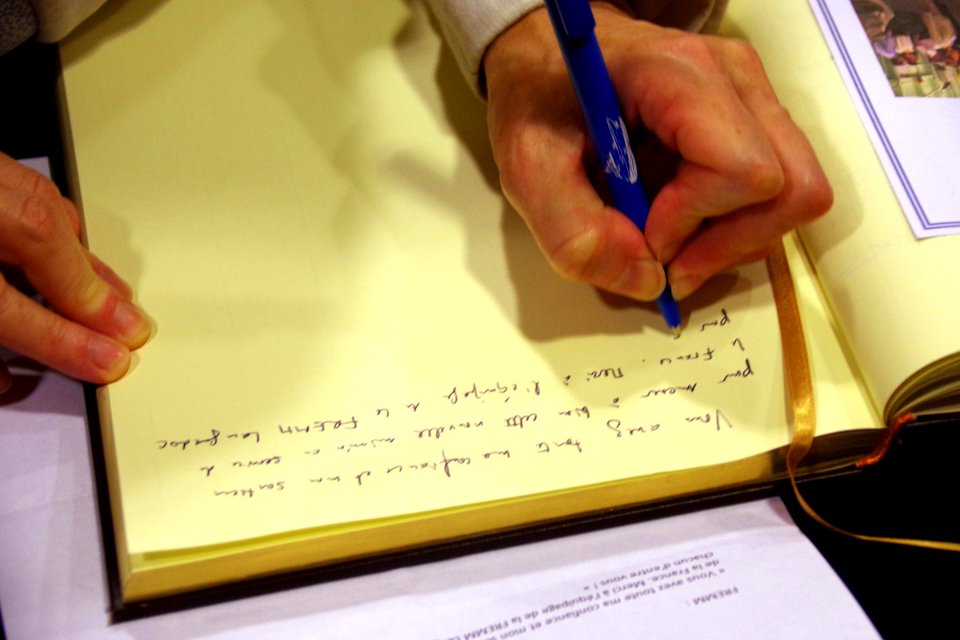 Vous avez toute ma confiance et mon soutien
pour mener à bien cette nouvelle mission au service de
la France. Merci à l'équipage de la FREMM Languedoc
pour
FREMM :
« Vous avez toute ma confiance et mon
de la France. Merci à l'équipage de la FREMM
chacun d'entre vous ! »